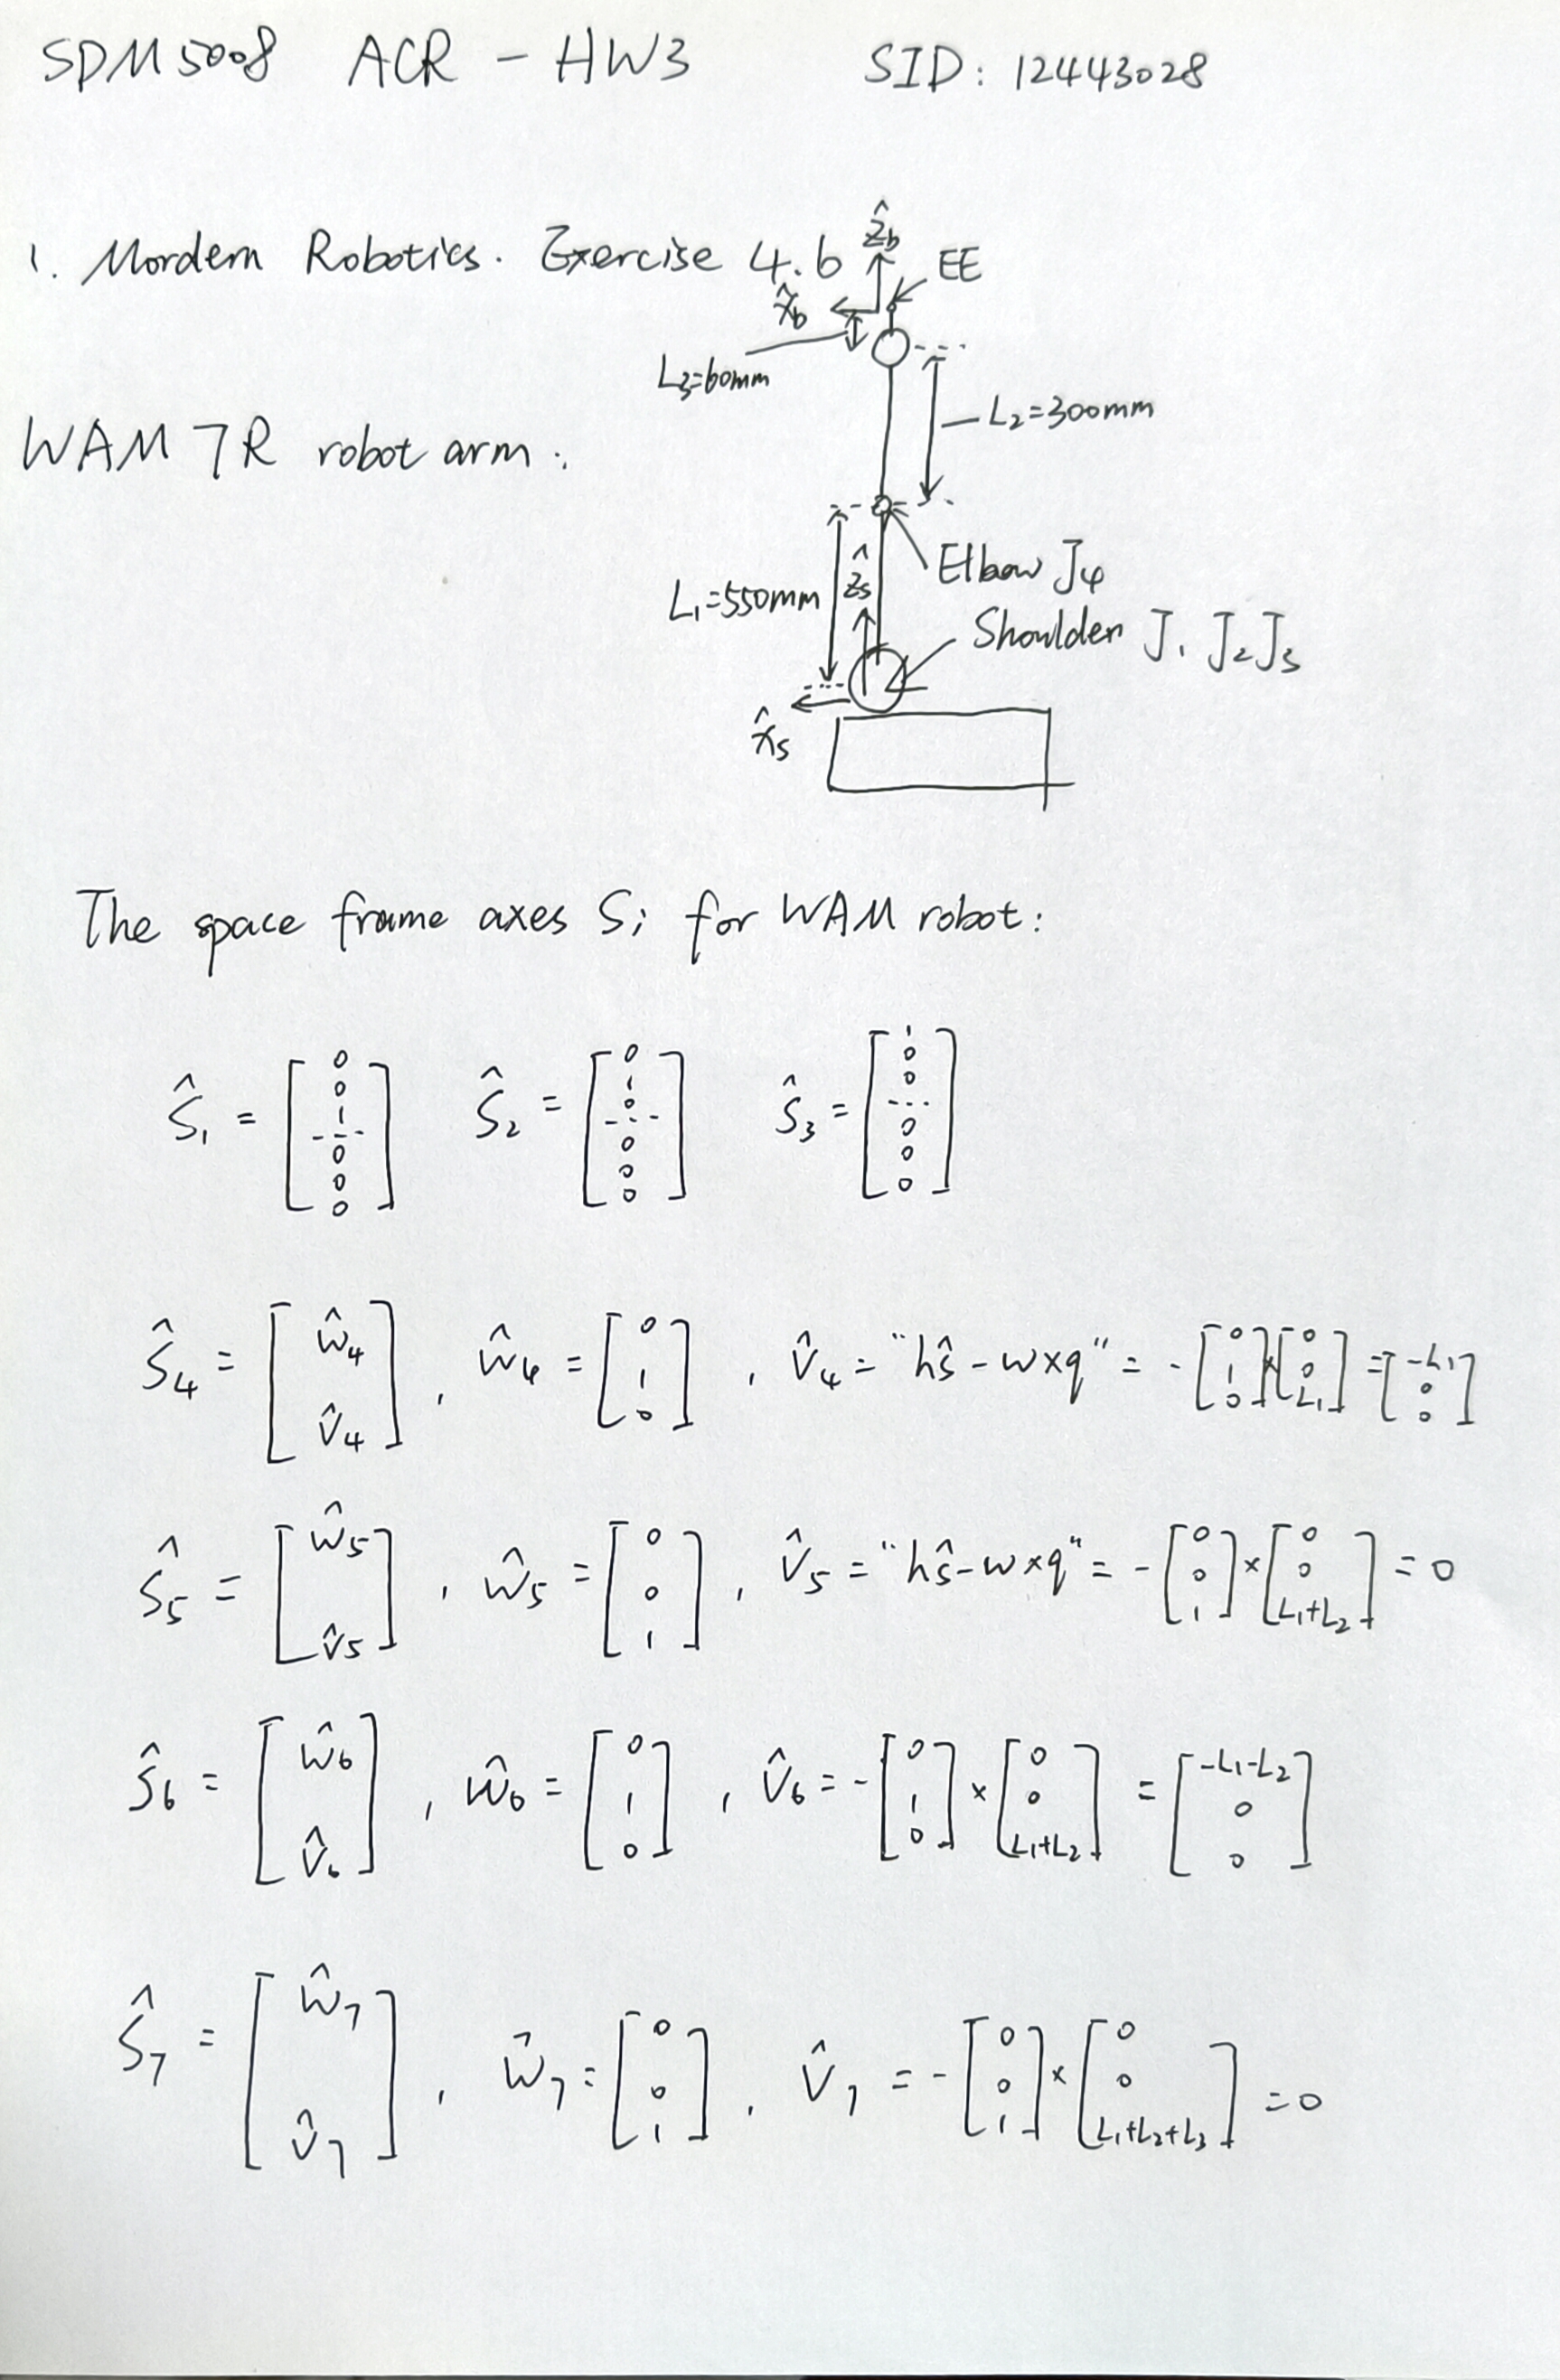 SDM5008 ACR - HW3 SID: 12443028
1. Mordern Robotics. Exercise 4.6
ẑb
EE
x̂b
L3=60mm
L2=300mm
WAM 7R robot arm:
L1=550mm
ẑs
Elbow J4
Shoulder J1 J2 J3
x̂s
The space frame axes Si for WAM robot:
Ŝ1 = [0 0 1 0 0 0] Ŝ2 = [0 1 0 0 0 0] Ŝ3 = [1 0 0 0 0 0]
Ŝ4 = [ŵ4 v̂4], ŵ4 = [0 1 0], v̂4 = "hŝ - w×q" = -[0 1 0]×[0 0 L1] = [-L1 0 0]
Ŝ5 = [ŵ5 v̂5], ŵ5 = [0 0 1], v̂5 = "hŝ-w×q" = -[0 0 1]×[0 0 L1+L2] = 0
Ŝ6 = [ŵ6 v̂6], ŵ6 = [0 1 0], v̂6 = -[0 1 0]×[0 0 L1+L2] = [-L1-L2 0 0]
Ŝ7 = [ŵ7 v̂7], ŵ7 = [0 0 1], v̂7 = -[0 0 1]×[0 0 L1+L2+L3] = 0